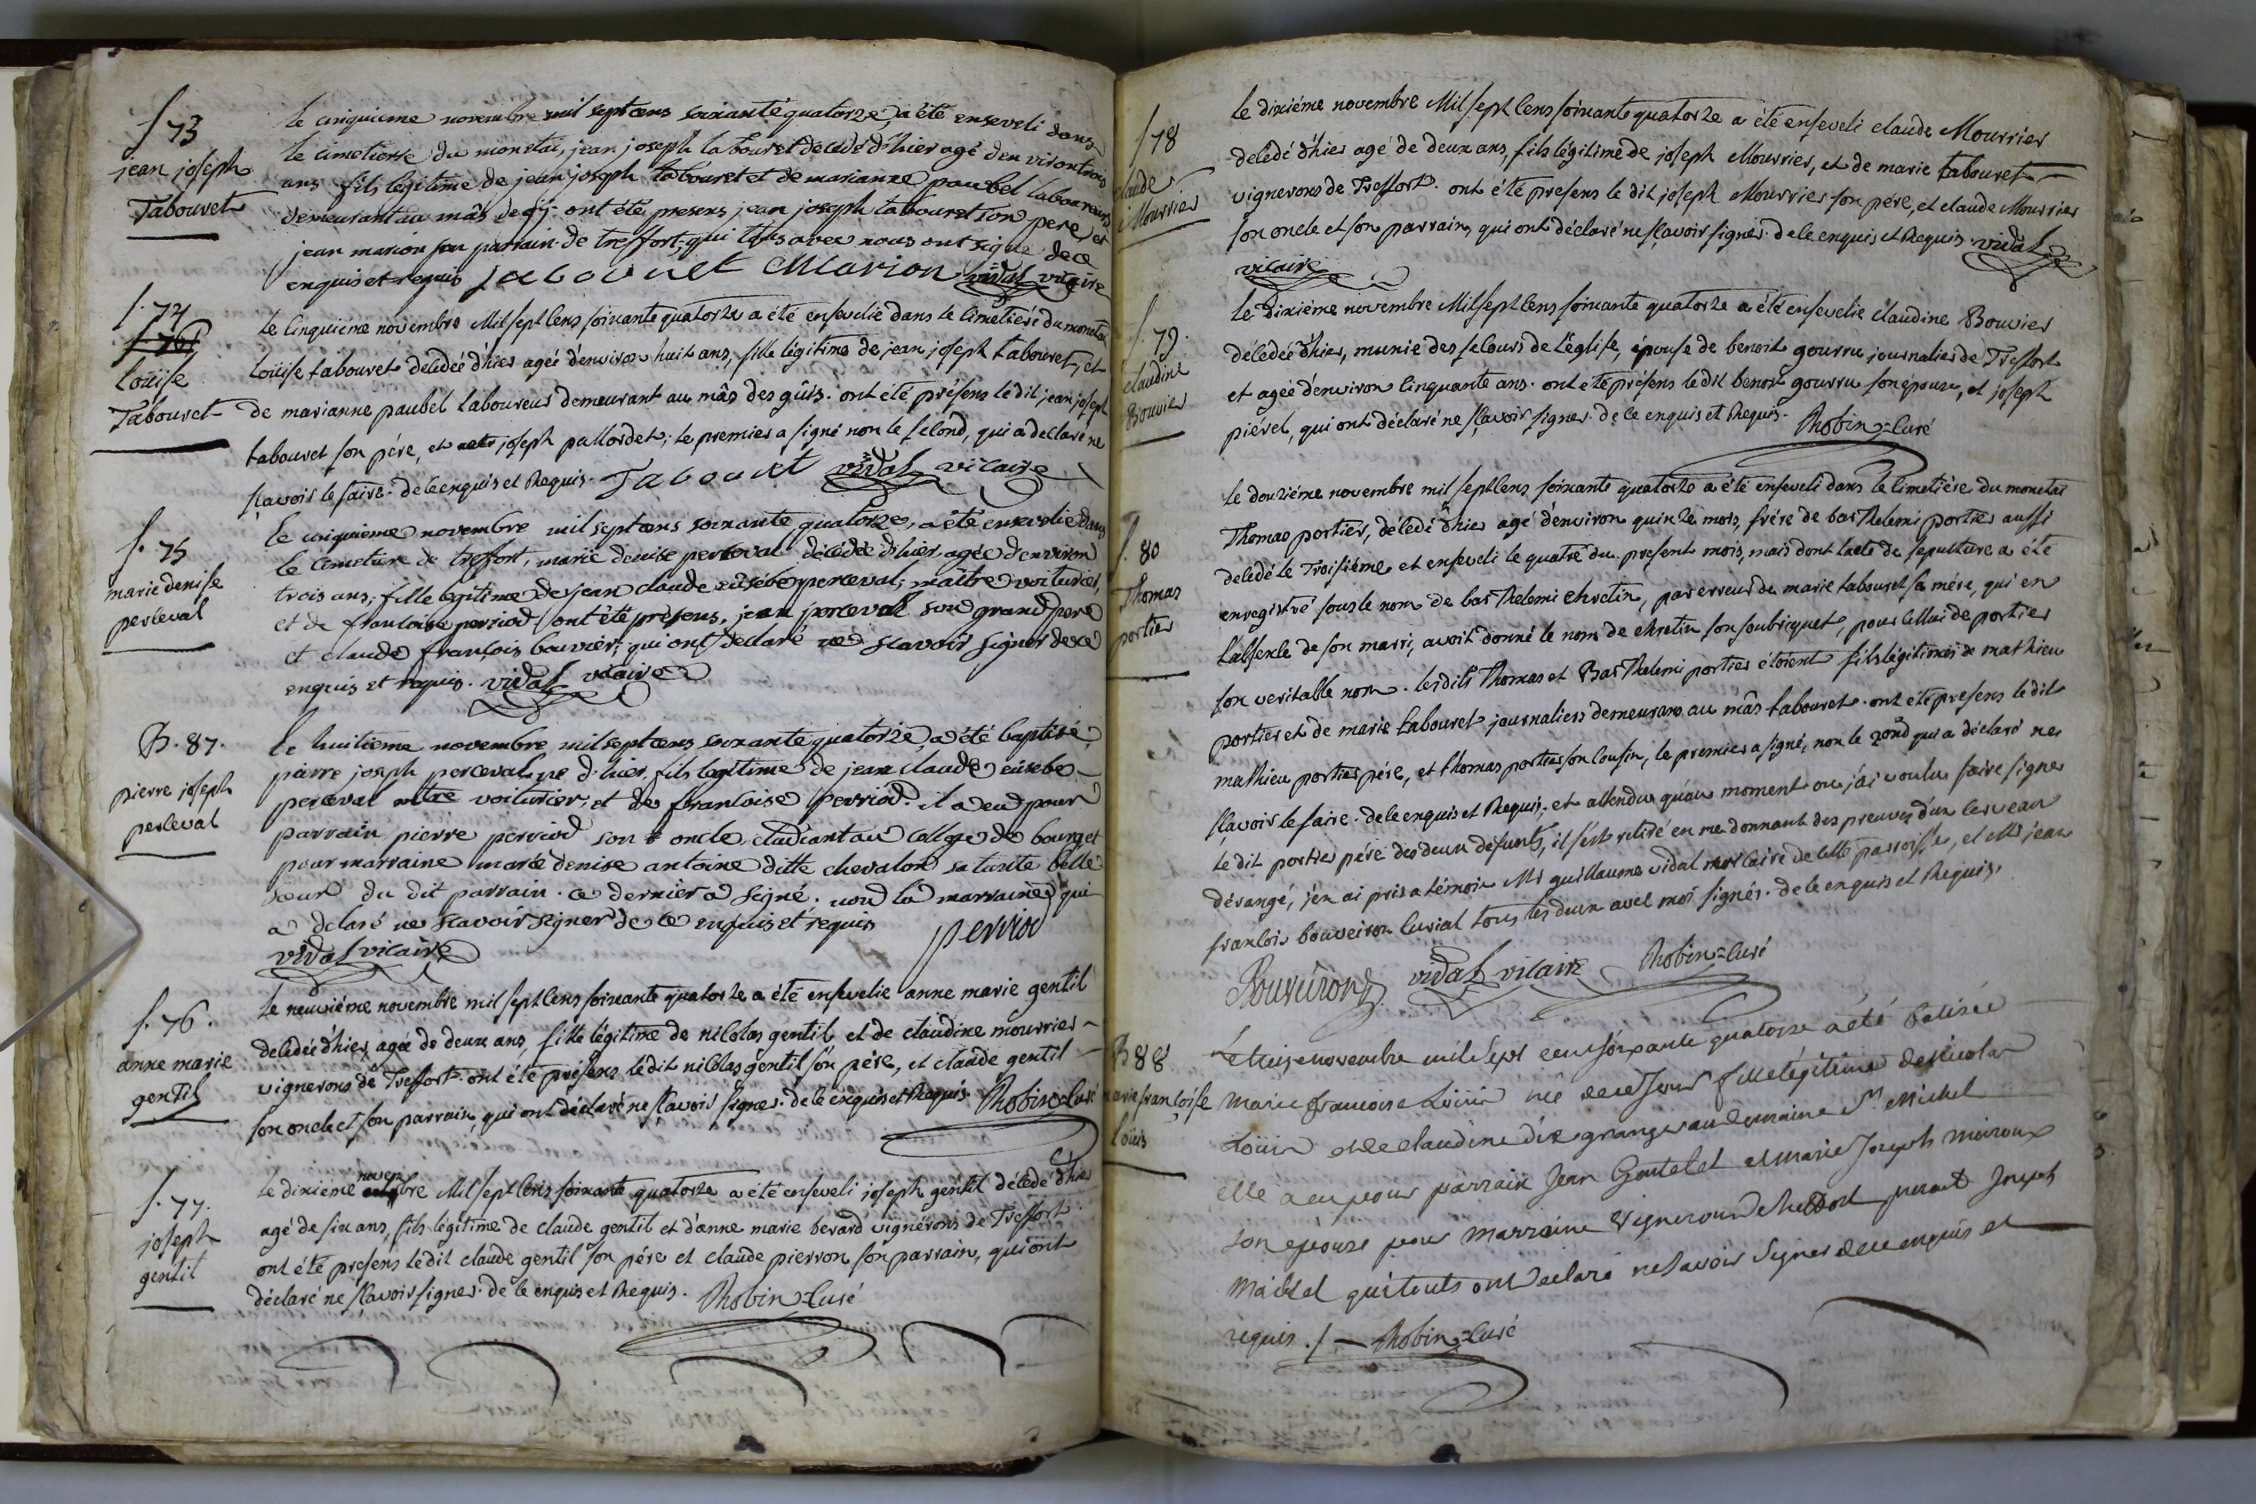 S. 73
jean joseph
Tabouret
le cinquieme novembre mil sept cens soixante quatorze a été enseveli dans
le cimetierre du monetai, jean joseph tabouret decedé d'hier agé d'environ trois
ans fils legitime de jean joseph tabouret et de marianne paubel laboureurs
demeurant au mâs de . ont étés presens jean joseph tabouret son pere et
jean marion son parrain de treffort, qui tous avec nous ont signé de ce
enquis et requis Tabouret Marion vidal vicaire
S. 74
Loüise
Tabouret
Le cinquieme novembre Mil sept cens soixante quatorze a été ensevelie dans le cimetiére du monetai
Loüise tabouret décedée d'hier agée d'environ huit ans, fille légitime de jean joseph tabouret, et
de marianne paubel laboureurs demeurant au mâs des gûis. ont été présens le dit jean joseph
tabouret son pére, et joseph pallordet; le premier a signé non le second, qui a déclaré ne
sçavoir le faire. de ce enquis et Requis. Tabouret vidal vicaire
S. 75
marie denise
perceval
Le cinquieme novembre mil sept cens soixante quatorze, a été ensevelie dans
le cimetiere de treffort, marie denise perceval décédée d'hier agée d'environ
trois ans; fille legitime de jean claude eusebe perceval, maître voiturier,
et de francoise perriod ont été présens, jean perceval son grand pere
et claude françois bouvier; qui ont declaré ne sçavoir signer de ce
enquis et requis. vidal vicaire
B. 87.
pierre joseph
perceval
Le huitieme novembre mil sept cens soixante quatorze, a été baptisé
pierre joseph perceval né d'hier, fils legitime de jean claude eusebe
perceval mtre voiturier, et de francoise perriod. il a eu pour
parrain pierre perriod son oncle etudiant au college de bourg et
pour marraine marie denise antoine ditte chevalon sa tante belle
soeur du dit parrain. ce dernier a signé. non la marraine qui
a declaré ne scavoir signer de ce enquis et requis
perriod
vidal vicaire
S. 76.
anne marie
gentil
Le neuviéme novembre mil sept cens soixante quatorze a été ensevelie anne marie gentil
décedée d'hier agée de deux ans, fille légitime de nicolas gentil et de claudine mourrier
vignerons de Treffort. ont été présens le dit nicolas gentil son pére, et claude gentil
son oncle et son parrain, qui ont déclaré ne sçavoir signer. de ce enquis et Requis. Robin curé
S. 77.
joseph
gentil
Le dixiéme novembre Mil sept cens soixante quatorze a été enseveli joseph gentil décedé d'hier
agé de six ans, fils légitime de claude gentil et d'anne marie berard vignerons de Treffort.
ont été presens le dit claude gentil son pére et claude pierron son parrain, qui ont
déclaré ne sçavoir signer. de ce enquis et Requis. Robin curé
S. 78
claude
Mourrier
le dixiéme novembre Mil sept cens soixante quatorze a été enseveli claude Mourrier
decedé d'hier agé de deux ans, fils légitime de joseph Mourrier, et de marie tabouret
vignerons de Treffort. ont été presens le dit joseph Mourrier son pére, et claude Mourrier
son oncle et son parrain, qui ont déclaré ne sçavoir signer. de ce enquis et Requis. vidal
vicaire
S. 79.
claudine
Bouvier
Le Dixiéme novembre Mil sept cens soixante quatorze a été ensevelie claudine Bouvier
décedée d'hier, munie des secours de l'église, épouse de benoit gourru journalier de Treffort
et agée d'environ cinquante ans. ont été présens le dit benoit gourru son époux, et joseph
piérel, qui ont déclaré ne sçavoir signer. de ce enquis et Requis. Robin curé
S. 80
Thomas
portier
Le douziéme novembre mil sept cens soixante quatorze a été enseveli dans le cimetiére du monetai
Thomas portier, décedé d'hier agé d'environ quinze mois, frére de barthelemi portier aussi
decedé le Troisiéme et enseveli le quatre du present mois, mais dont l'acte de sepulture a été
enregistré sous le nom de barthelemi chretin, par erreur de marie tabouret sa mére, qui en
l'absence de son marri, avoit donné le nom de chretin son soubriquet, pour celui de portier
son veritable nom. lesdits Thomas et Barthelemi portier étoient fils légitimes de mathieu
portier et de marie tabouret journaliers demeurans au mâs tabouret. ont été presens le dit
mathieu portier pére, et thomas portier son cousin, le premier a signé, non le 2ond qui a déclaré ne
sçavoir le faire. de ce enquis et Requis; et attendu qu'au moment ou j'ai voulu faire signer
le dit portier pére des deux défunts, il s'est retiré en me donnant des preuves d'un cerveau
dérangé, j'en ai pris a témoin Mr guillaume vidal vicaire de cette parroisse, et Mr jean
francois bouveiron curial tous les deux avec moi signés. de ce enquis et Requis.
Bouveiron vidal vicaire Robin curé
B 88
marie françoise
Loüis
Le treize novembre mil sept cent soixante quatorze a été batisée
Marie francoise Loüis née de ce jour fille légitime de Nicolas
Loüis et de Claudine dix grange au domaine St Michel
elle a eu pour parrain Jean Goutelet et Marie Joseph
son epouse pour marraine vignerons
Michel qui touts ont declaré ne savoir signer de ce enquis et
requis ./. Robin curé